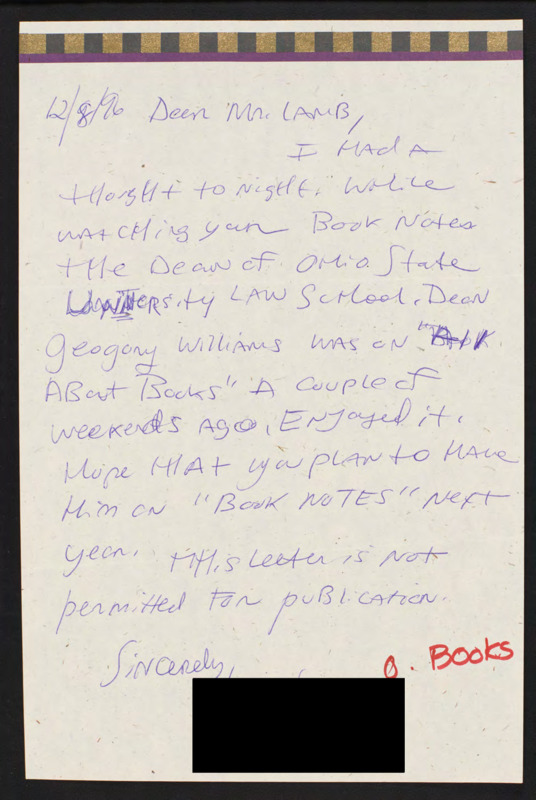 12/8/96 Dear Mr. LAMB,
I HAd A
tHougHt toNigHt. WHile
watcHing your Book Notes
tHe Dean of OHio State
UNiversity LAW ScHool. Dean
Geogory Williams was on "TAlk
ABout Books" A couple of
weekends Ago. ENjoyed it.
Hope tHAt you plan to HAve
Him on "Book NoTES" Next
year. tHis letter is Not
permitted For puBlication.
Sincerely,
O. Books